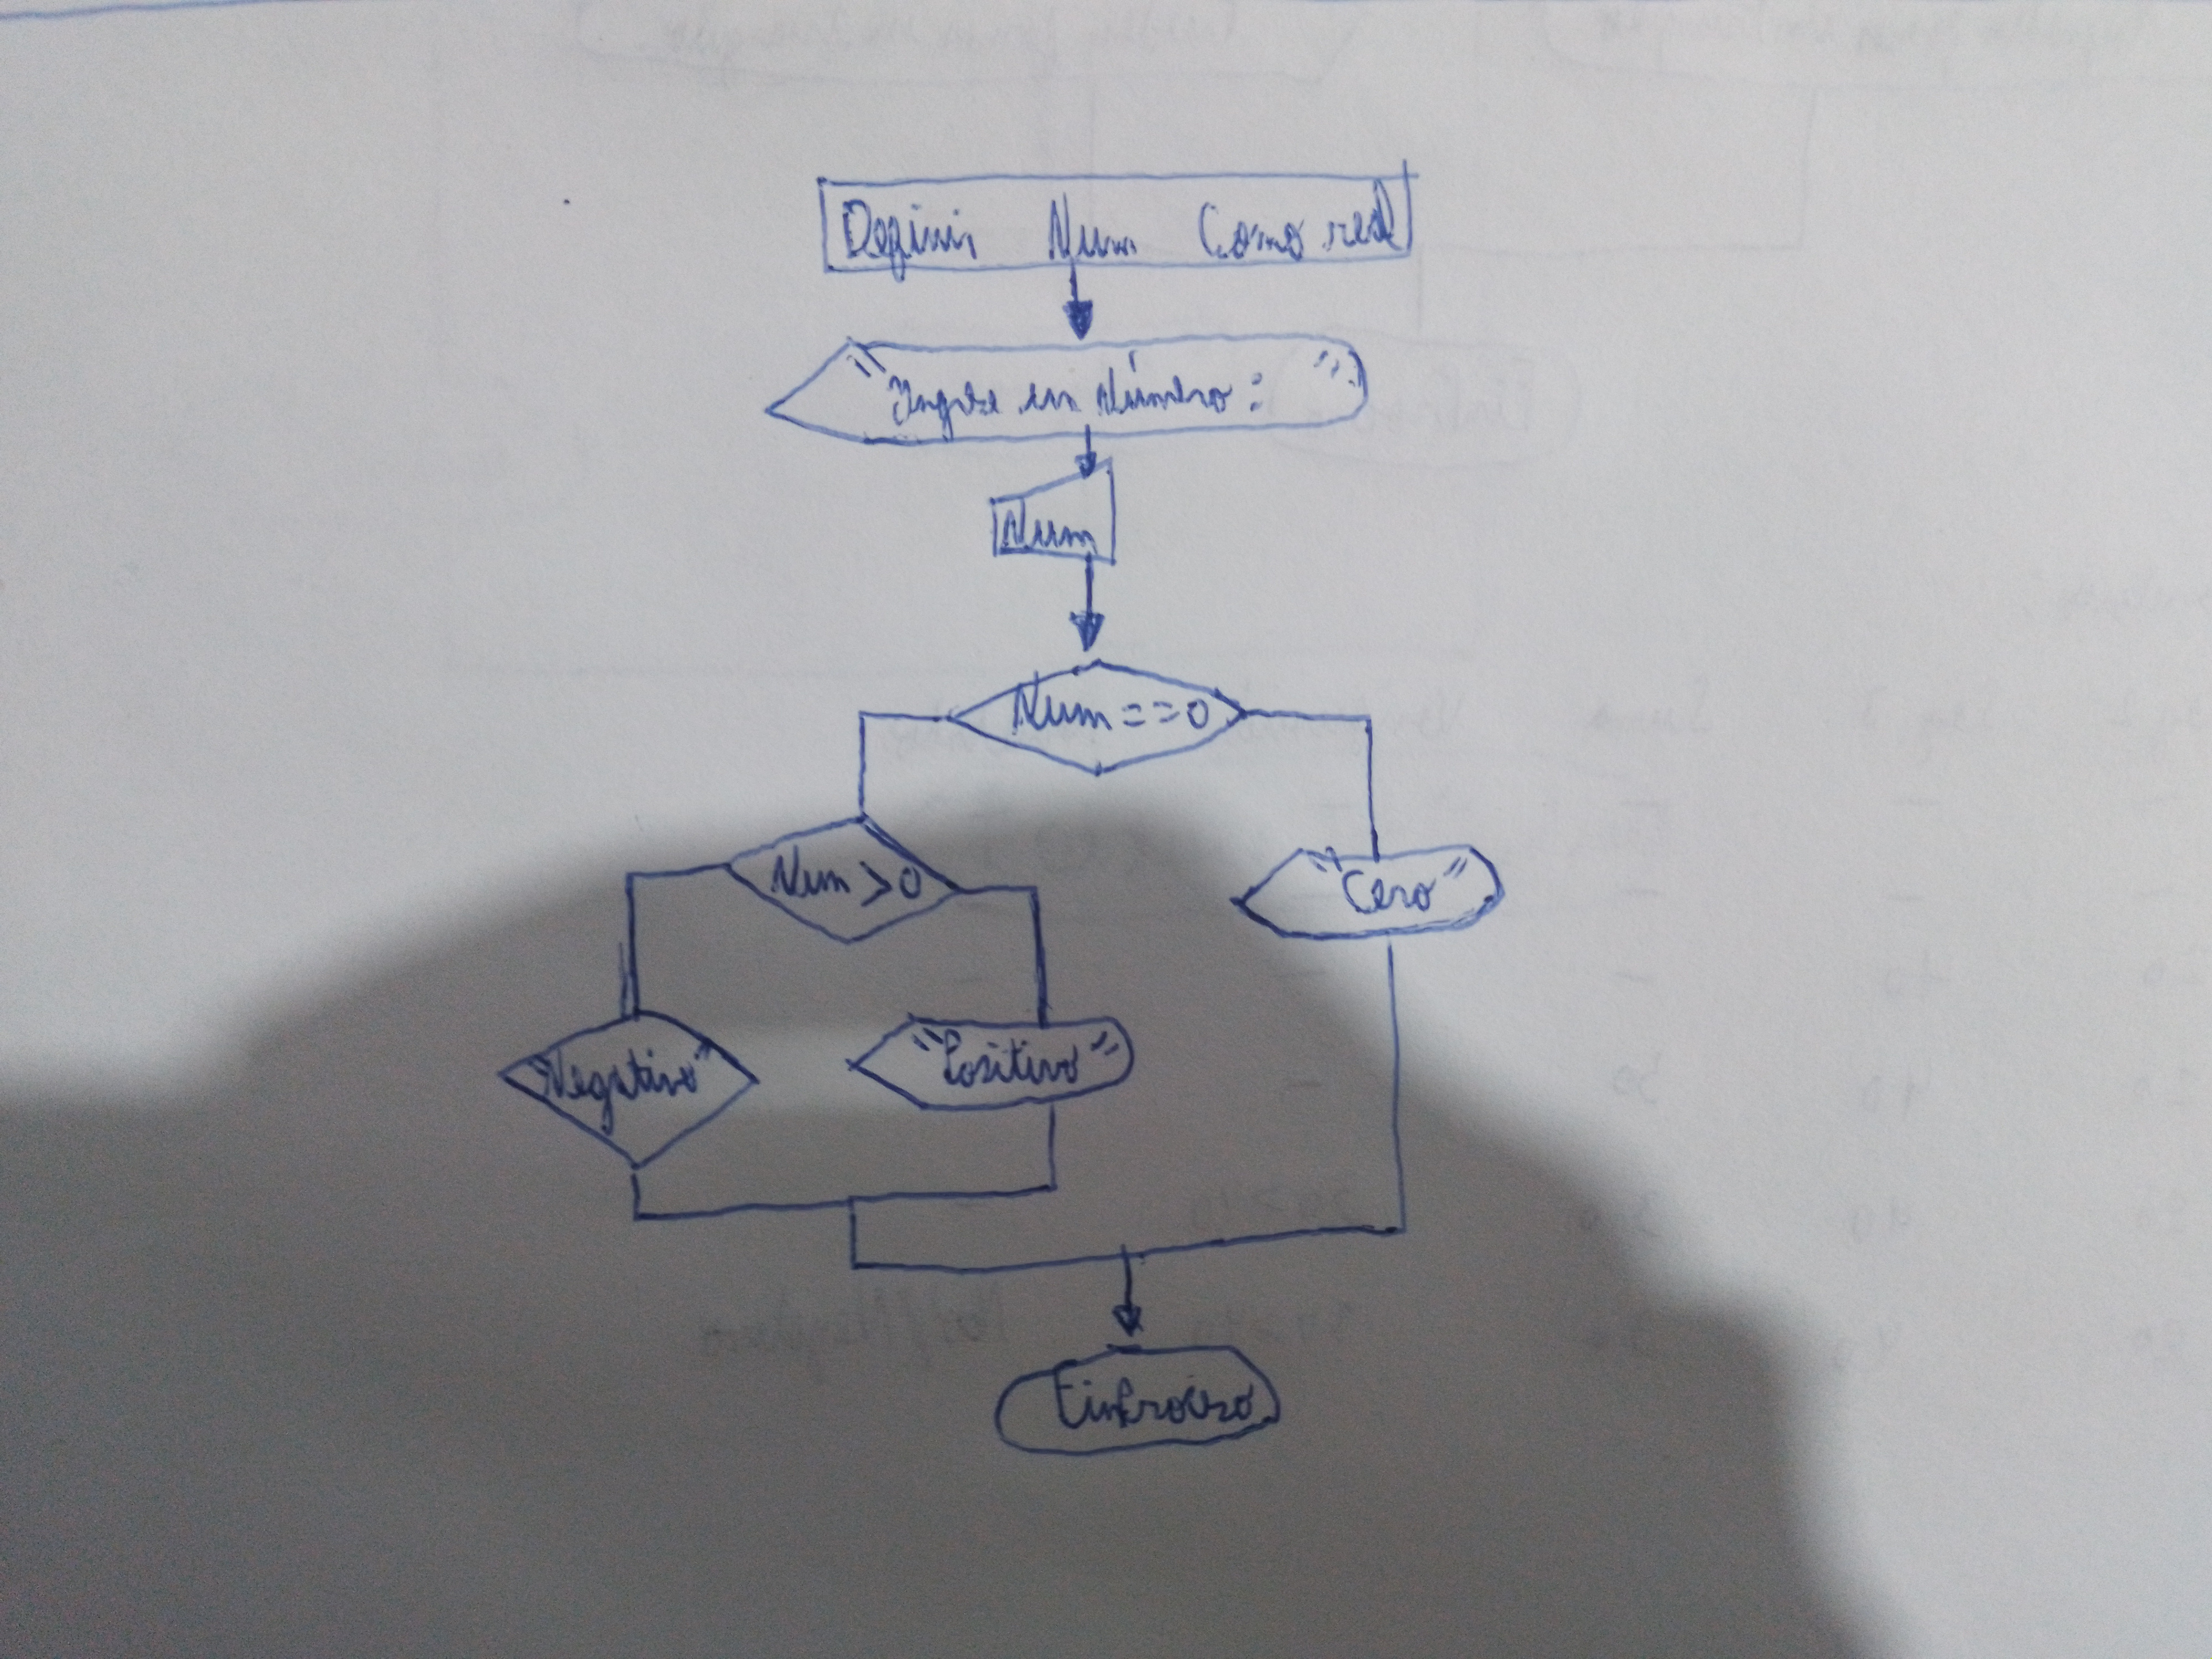 Definir Num Como real
"Ingrese un Número: "
Num
Num==0
Num>0
"Cero"
"Negativo"
"Positivo"